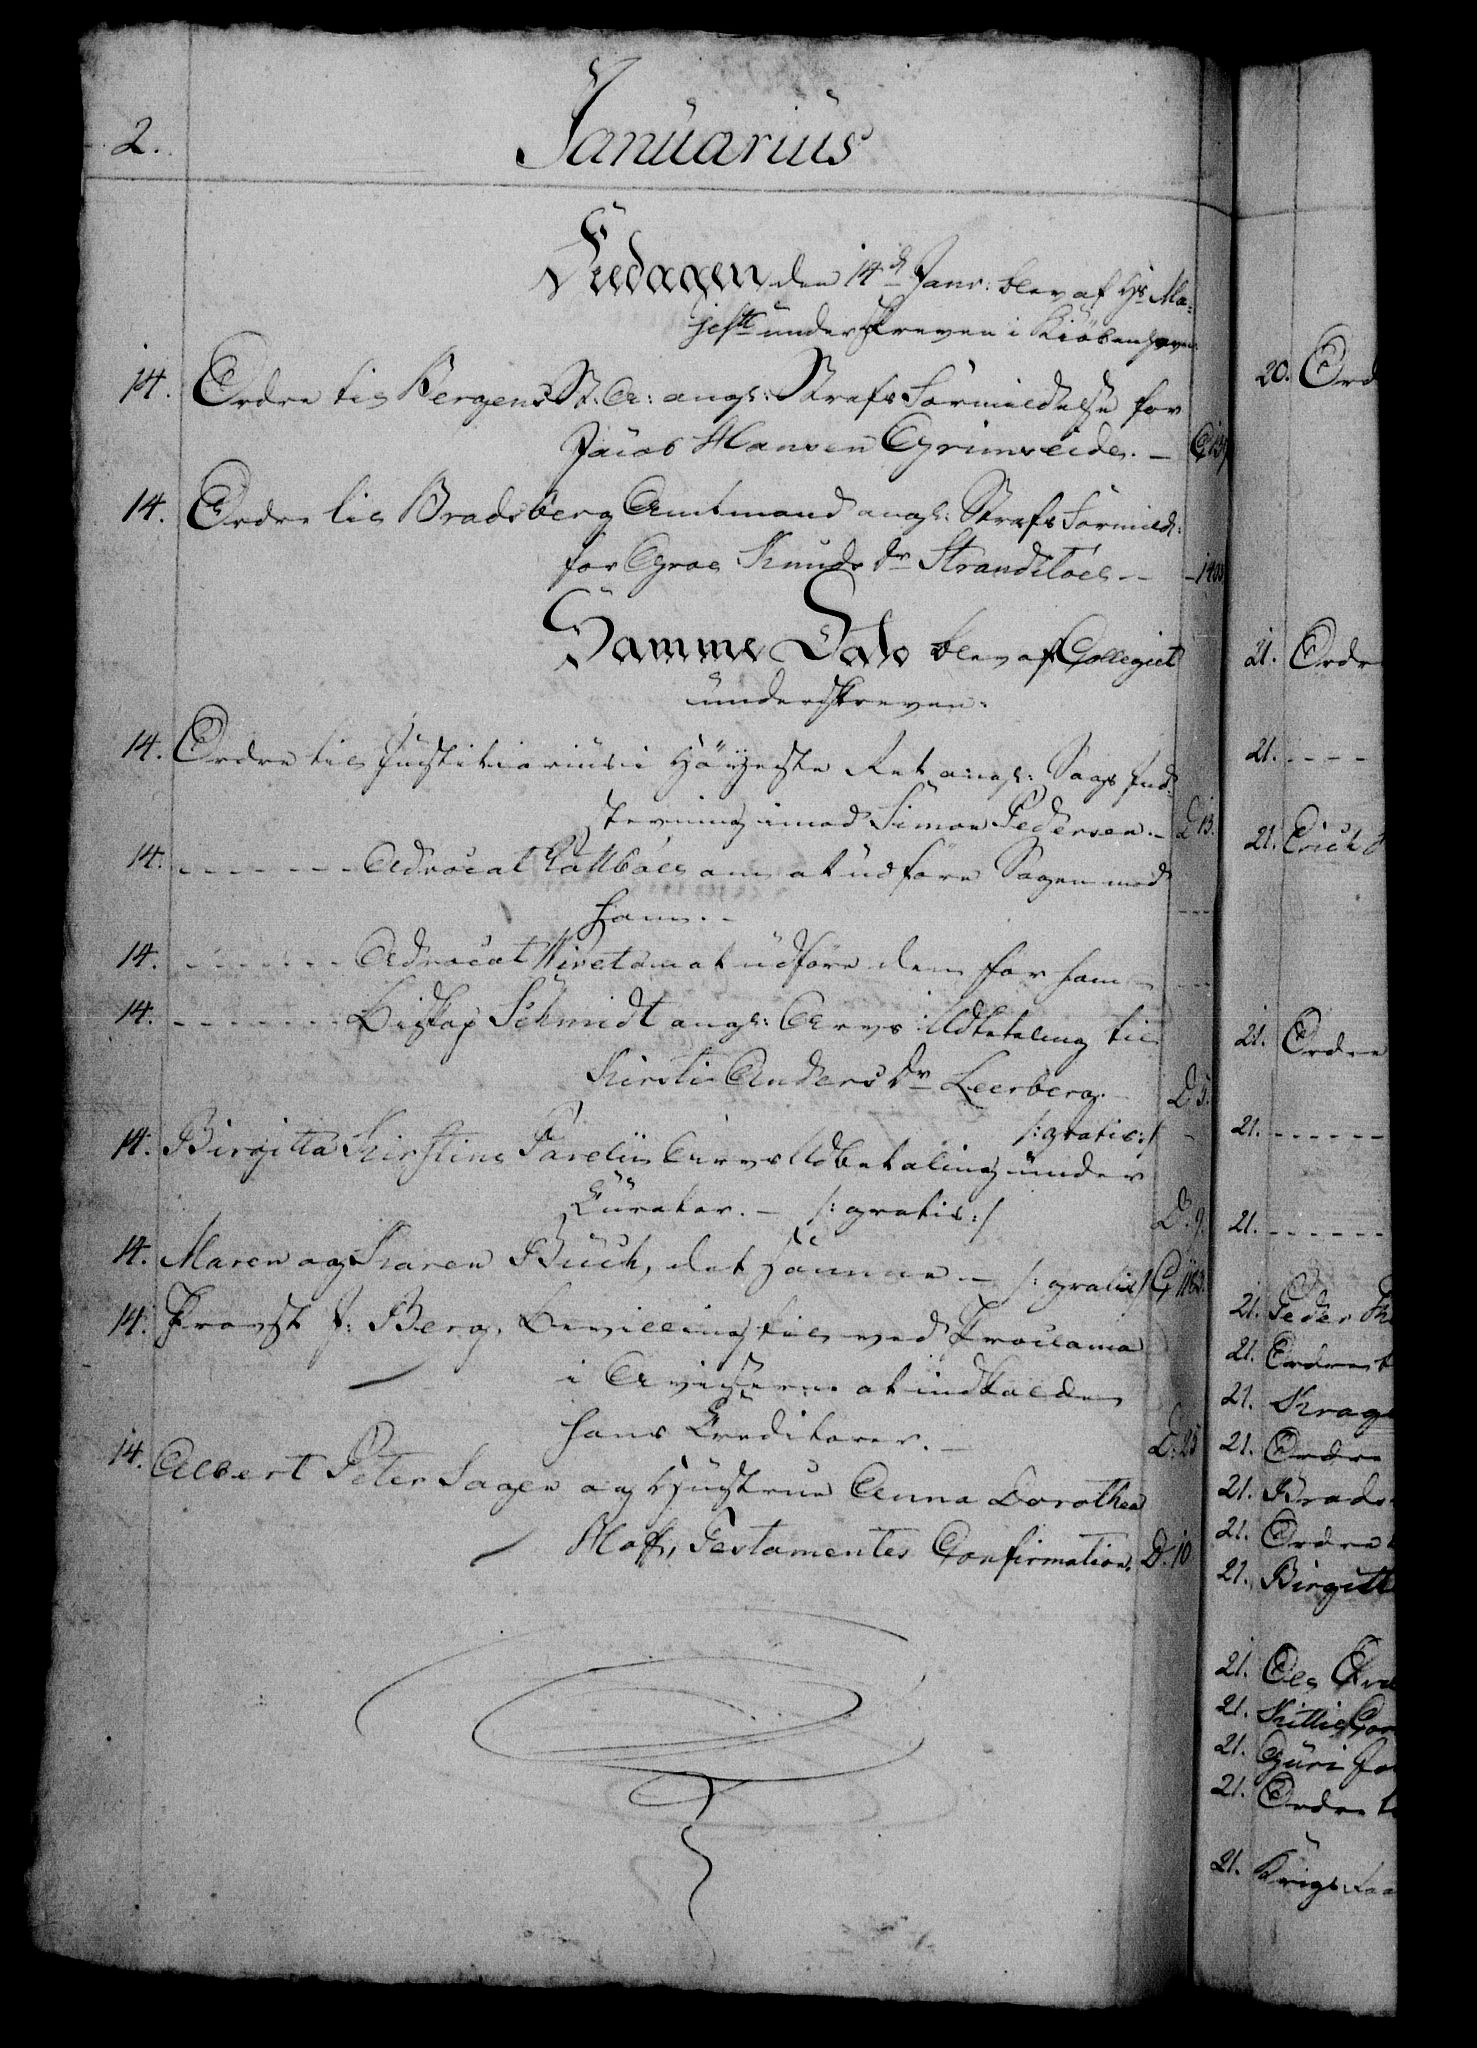 2.
Januarius
Fredagen den 14d Janr: blev af Hs Ma-
jestt underskreven i Kiöbenhavn.
14. Ordre til Bergens St. A: angl: Straf Formildelse for
Jacob Hansen Grimseide. — C 139
14. Ordre til Bradsberg Amtmand angl: Strafs Formild:
for Groe Knuds Dr Strandstöel — — 140
Samme Dato blev af Collegiet
underskreven.
14. Ordre til Justitiarius i Höyeste Ret angl: Sags Ind-
stevning imod Simon Pedersen. — D 13.
14. - - - - - - Advocat Rottböll om at udföre Sagen mod
ham. —
14. - - - - - - Advocat at udföre den for ham —
14. - - - - - - Biskop Schmidt angl: Arvs Udbetaling til
Kirsti Anders Dr Leerberg. — D 5.
/: gratis :/
14. Birgitta Kirstine Arvs Udbetaling under
Curator. — /: gratis :/ D. 9.
14. Maren og Karen Buch, det samme — /: gratis :/ C 1182.
14. Provst J: Berg, Bevilling til ved Proclama
i Aviserne at indkalde
hans Creditorer. — D. 25
14. Albert Peter Sagen og Hustrue Anna Dorothea
Hoff, Testamentes Confirmation. D. 10
20. Ord
21. Ordr
21. - - - -
21. Erich
21. Ordre
21. - - - - - -
21. - - - - - -
21. Peder
21. Ordre t
21. Krag
21. Ordre
21. Brads
21. Ordre
21. Birgitt
21. Ole
21. Kittil
21. Guri
21. Ordre t
21. Krigs